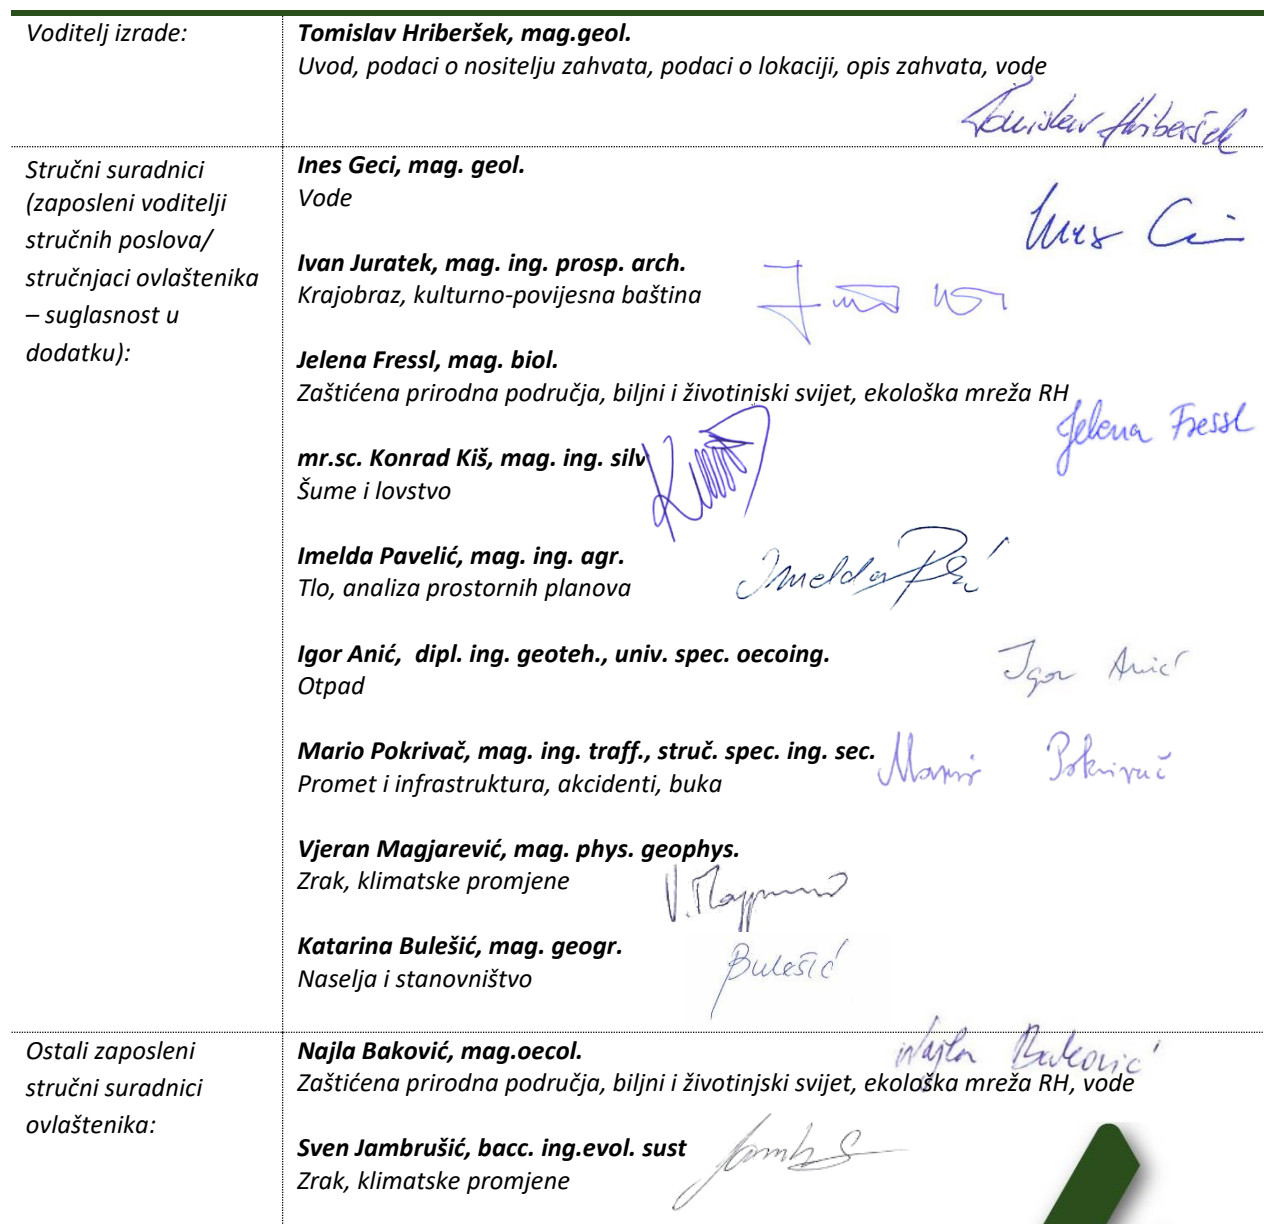 Voditelj izrade:
Tomislav Hriberšek, mag.geol.
Uvod, podaci o nositelju zahvata, podaci o lokaciji, opis zahvata, vode
Tomislav Hriberšek
Stručni suradnici
(zaposleni voditelji
stručnih poslova/
stručnjaci ovlaštenika
– suglasnost u
dodatku):
Ines Geci, mag. geol.
Vode
Ines
Ivan Juratek, mag. ing. prosp. arch.
Krajobraz, kulturno-povijesna baština
Jelena Fressl, mag. biol.
Zaštićena prirodna područja, biljni i životinjski svijet, ekološka mreža RH
Jelena Fressl
mr.sc. Konrad Kiš, mag. ing. silv
Šume i lovstvo
Imelda Pavelić, mag. ing. agr.
Tlo, analiza prostornih planova
Imelda
Igor Anić, dipl. ing. geoteh., univ. spec. oecoing.
Otpad
Igor Anić
Mario Pokrivač, mag. ing. traff., struč. spec. ing. sec.
Promet i infrastruktura, akcidenti, buka
Mario Pokrivač
Vjeran Magjarević, mag. phys. geophys.
Zrak, klimatske promjene
V.
Katarina Bulešić, mag. geogr.
Naselja i stanovništvo
Bulešić
Ostali zaposleni
stručni suradnici
ovlaštenika:
Najla Baković, mag.oecol.
Zaštićena prirodna područja, biljni i životinjski svijet, ekološka mreža RH, vode
Najla Baković
Sven Jambrušić, bacc. ing.evol. sust
Zrak, klimatske promjene